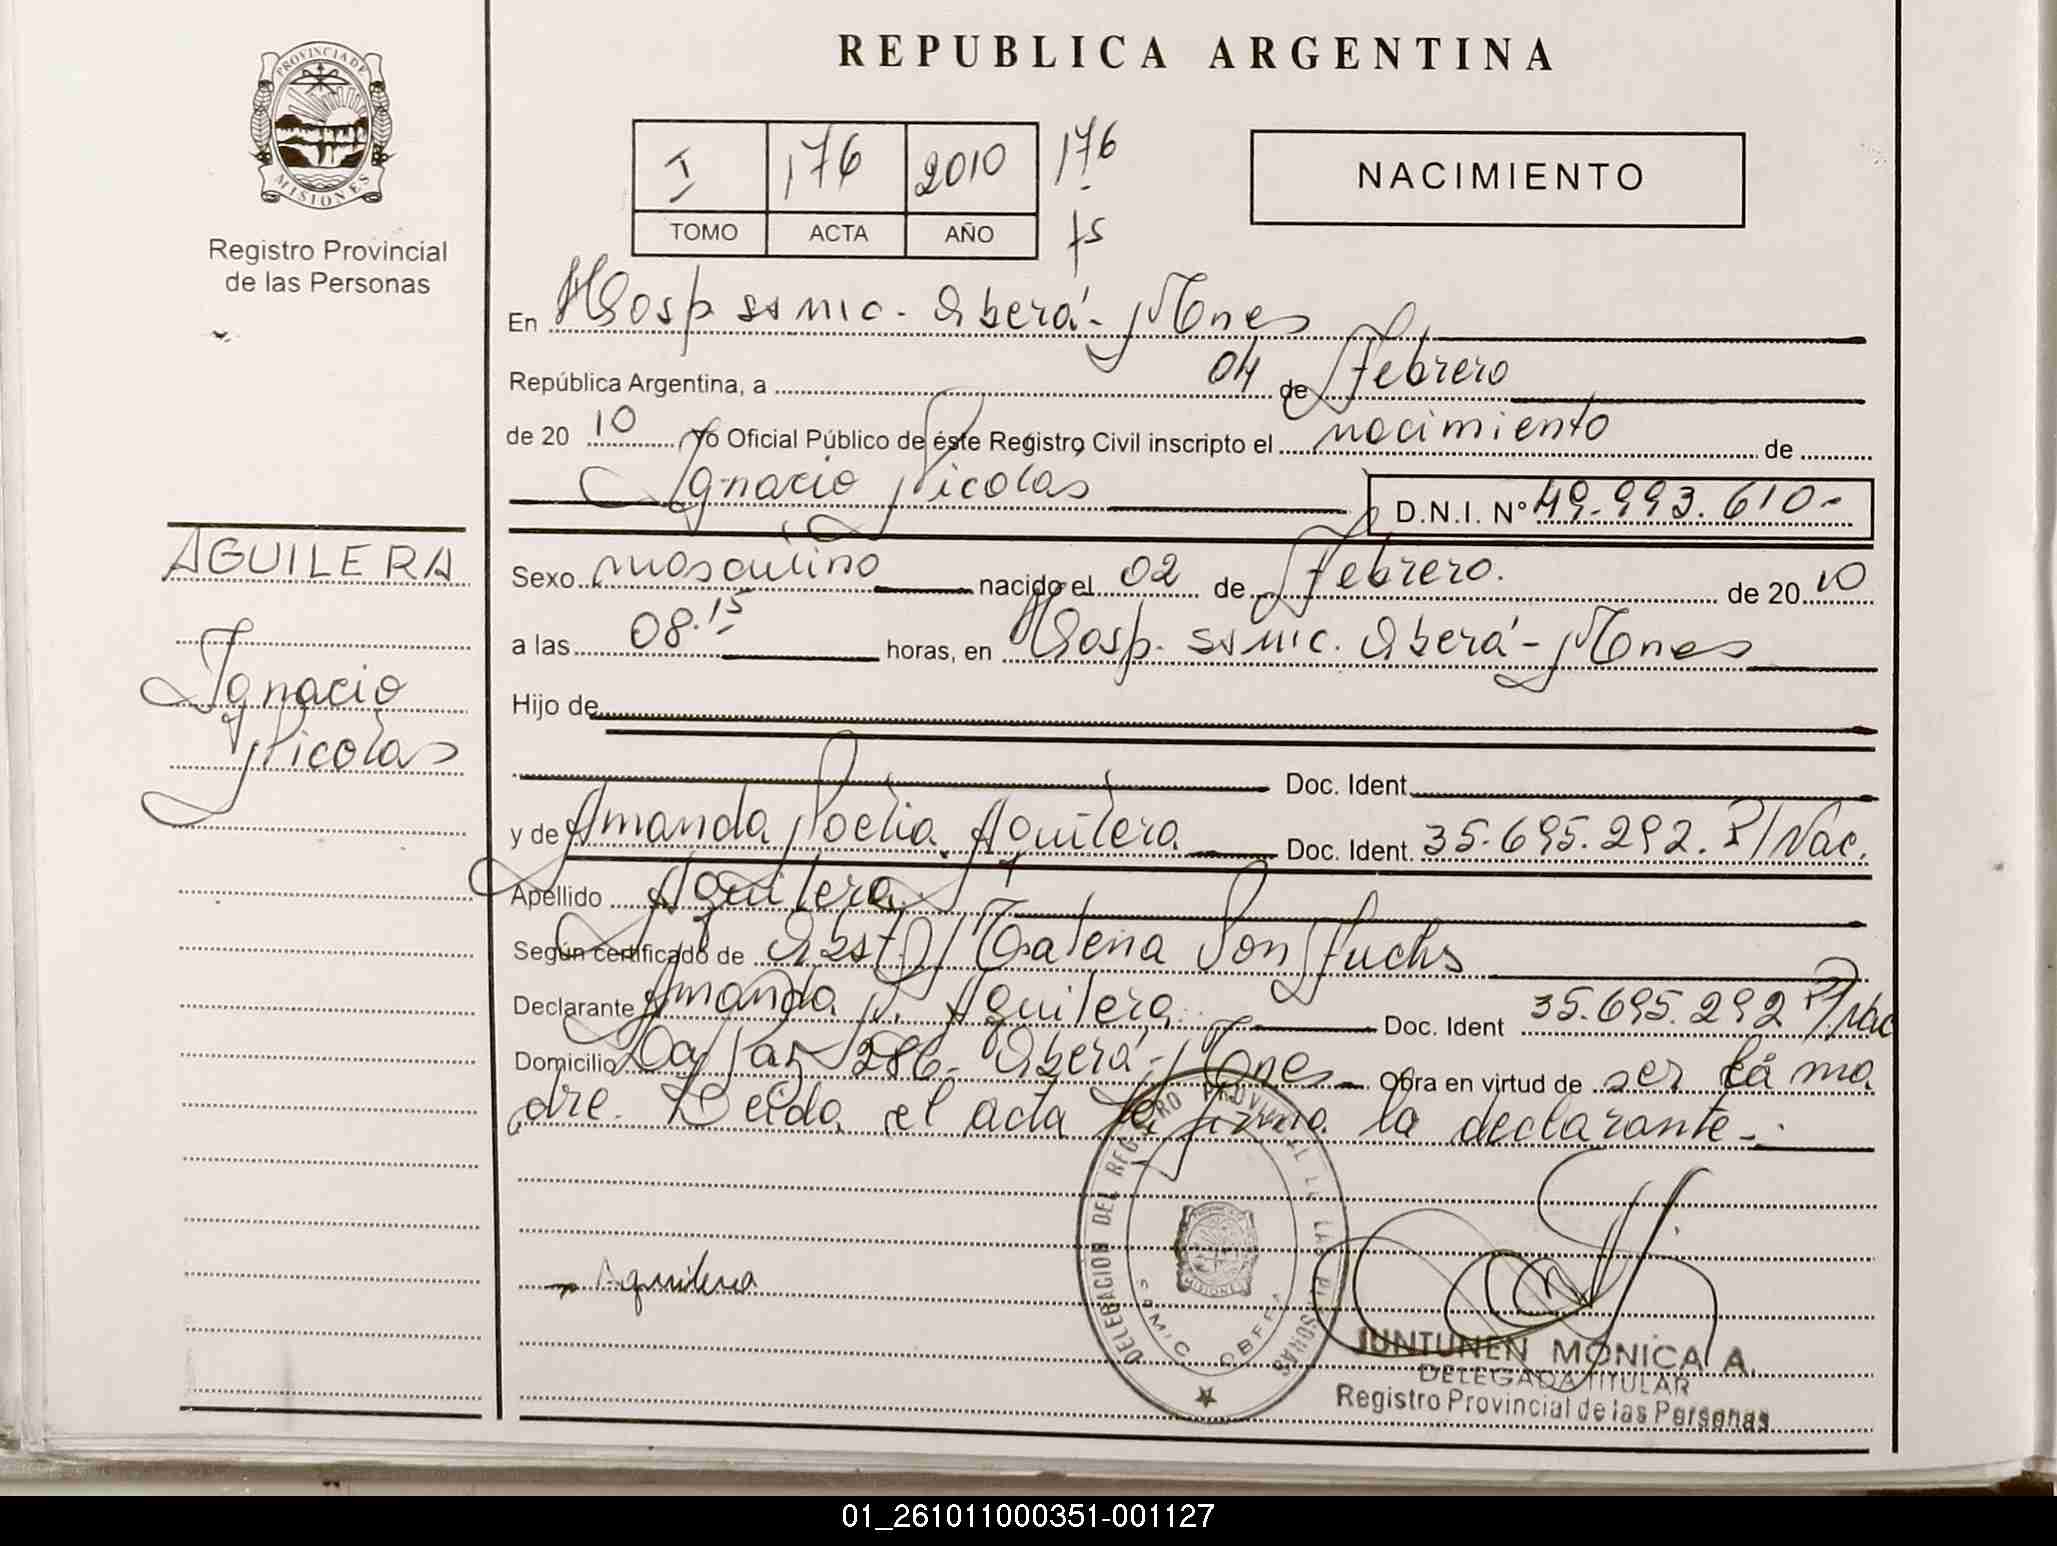 PROVINCIA DE
MISIONES
Registro Provincial
de las Personas
REPUBLICA ARGENTINA
I 176 2010 176
TOMO ACTA AÑO fs
NACIMIENTO
En Hosp ssmic. Oberá - Mnes
República Argentina, a 04 de Febrero
de 20 10 Yo Oficial Público de éste Registro Civil inscripto el nacimiento de
Ignacio Nicolás D.N.I. Nº 49.993.610.-
AGUILERA
Ignacio
Nicolás
Sexo masculino nacido el 02 de Febrero. de 20 10
a las 08.15 horas, en Hosp. ssmic. Oberá - Mnes
Hijo de
Doc. Ident.
y de Amanda Noelia Aguilera Doc. Ident. 35.695.292. P/Nac.
Apellido Aguilera
Según certificado de Obst. Von Fuchs
Declarante Amanda N. Aguilera Doc. Ident 35.695.292 P/Nac
Domicilio 286 - Oberá - Mnes - Obra en virtud de ser la ma
dre. Leida el acta la firma la declarante -
Aguilera
DELEGACION DEL REGISTRO PROVINCIAL DE LAS PERSONAS
MISIONES
JUNTUNEN MONICA A.
DELEGADA TITULAR
Registro Provincial de las Personas
01_261011000351-001127